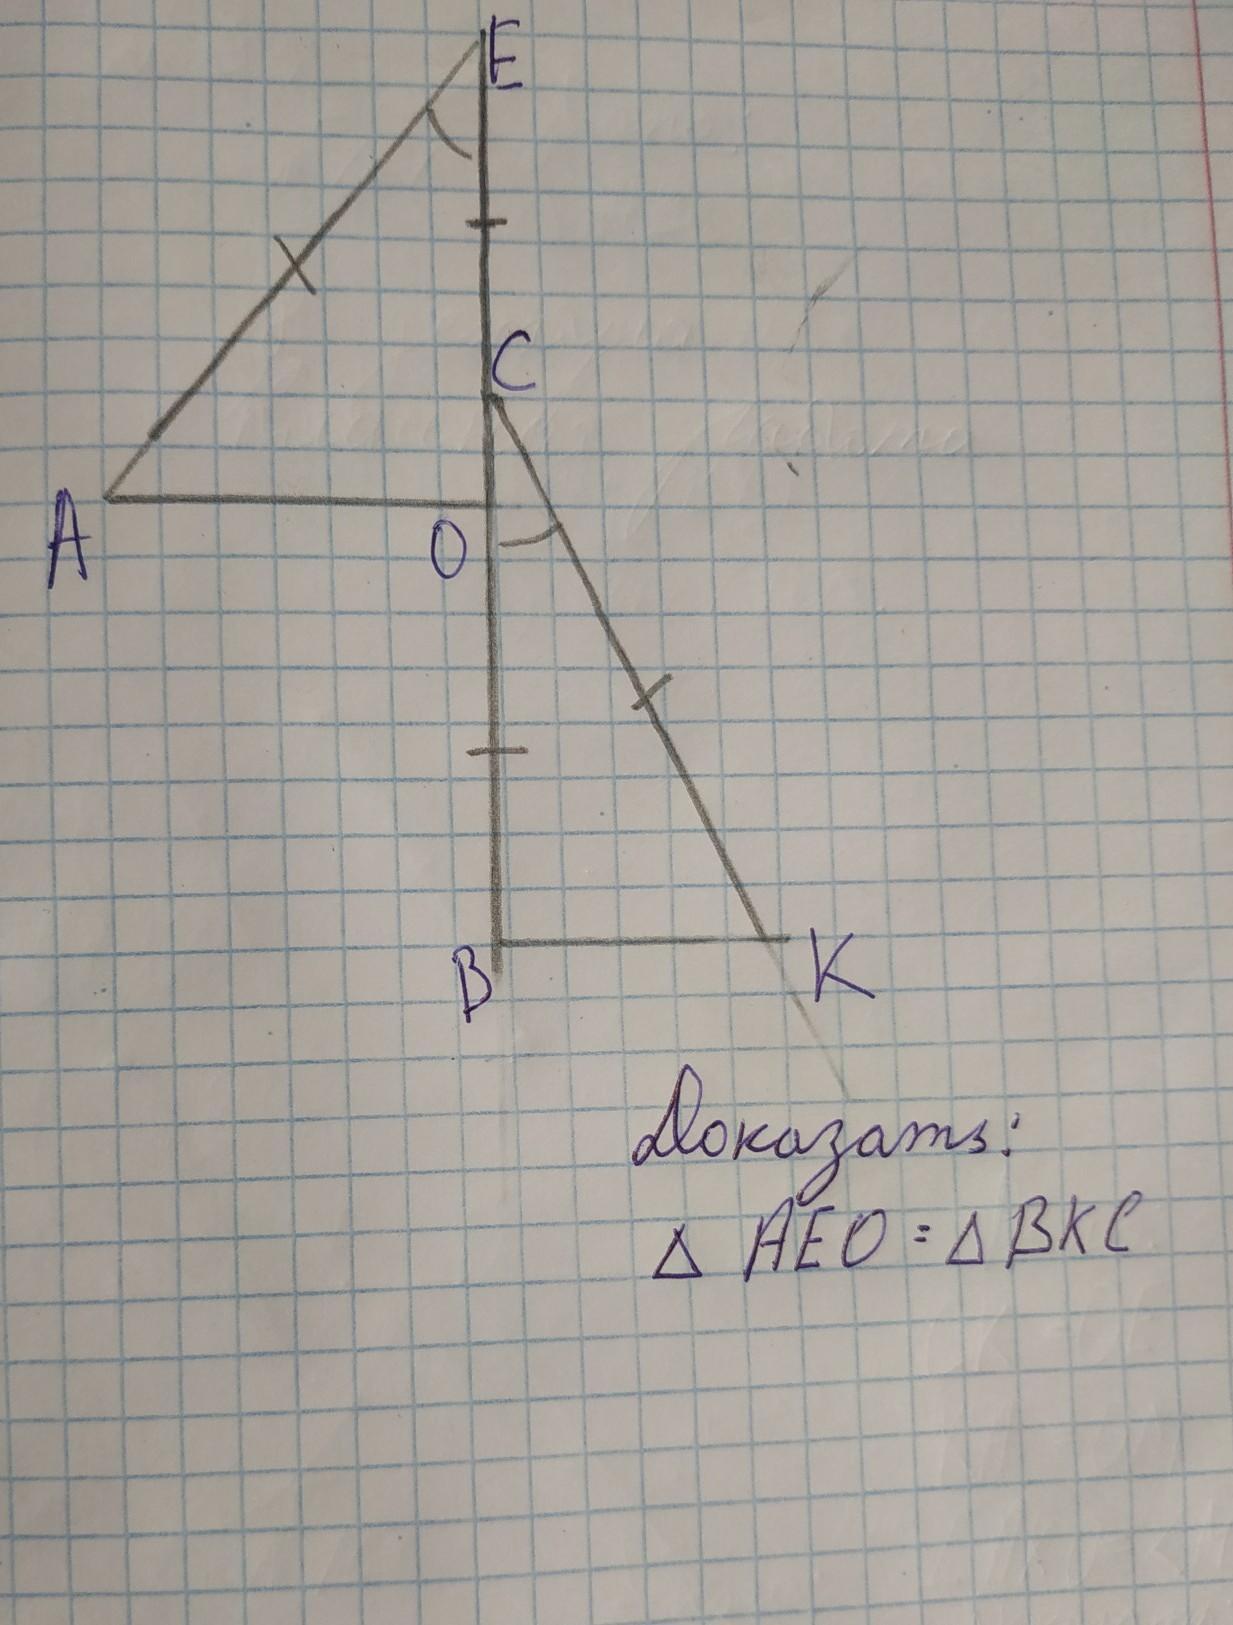 E
C
A
O
B
K
Доказать:
Δ AEO = Δ BKC